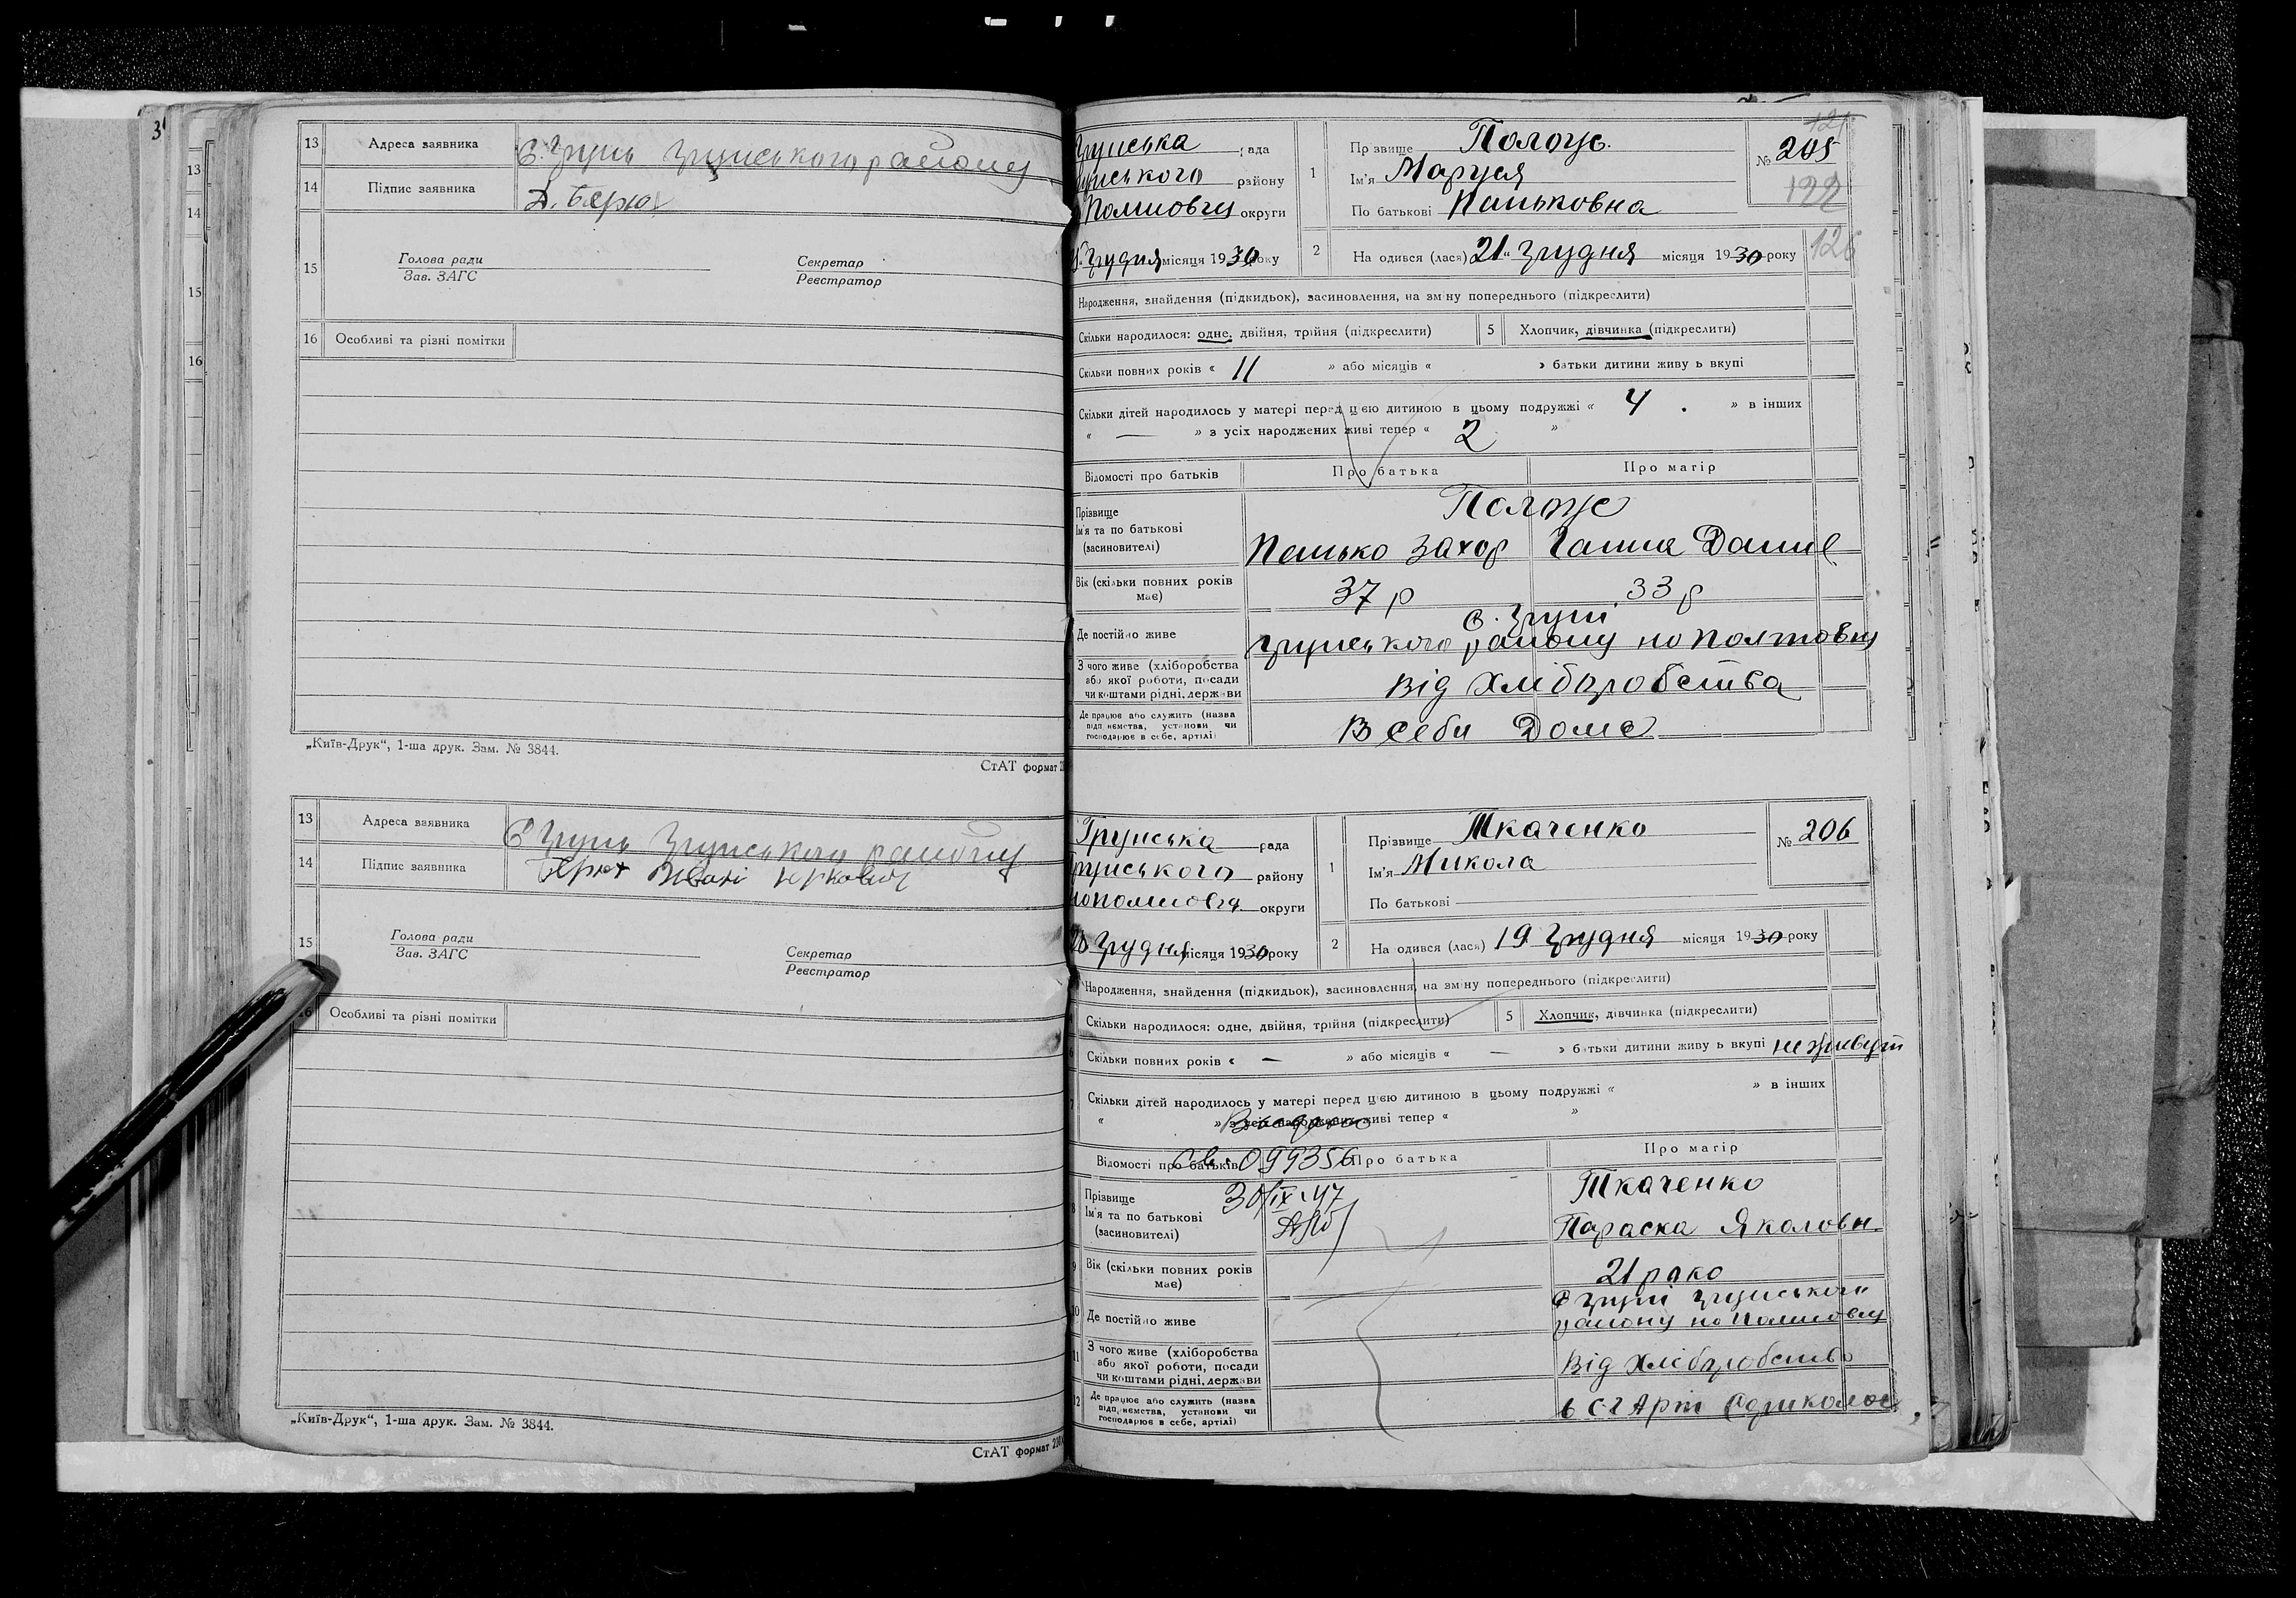 3
13 Адреса заявника С. Грунь Грунського району
14 Підпис заявника
15 Голова ради
Зав. ЗАГС
Секретар
Реєстратор
16 Особливі та різні помітки
„Київ-Друк“, 1-ша друк. Зам. № 3844.
СтАТ формат
13 Адреса заявника С Грунь Грунського району
14 Підпис заявника
15 Голова ради
Зав. ЗАГС
Секретар
Реєстратор
Особливі та різні помітки
„Київ-Друк“, 1-ша друк. Зам. № 3844.
СтАТ формат
Грунська рада
району
округи
Грудня місяця 1930 року
1 Прізвище
Ім'я Маруся
По батькові Паньковна
№ 205
122
126
2 На одився (лася) 21 Грудня місяця 1930 року
Народження, знайдення (підкидьок), засиновлення, на зміну попереднього (підкреслити)
Скільки народилося: одне, двійня, трійня (підкреслити) 5 Хлопчик, дівчинка (підкреслити)
Скільки повних років « 11 » або місяців « » батьки дитини живу ь вкупі
Скільки дітей народилось у матері перед цією дитиною в цьому подружжі « 4 » в інших
« — » з усіх народжених живі тепер « 2 »
Відомості про батьків Про батька Про матір
Прізвище
Ім'я та по батькові
(засиновителі) Панько Захор Ганна Данил
Вік (скільки повних років має) 37 р 33 р
Де постійно живе С. Груні
Грунського району на Полтовщ
З чого живе (хліборобства
або якої роботи, посади
чи коштами рідні, держави Від Хліборобства
Де працює або служить (назва
підприємства, установи чи
господарює в себе, артілі) В себи Дома
Грунська рада
Грунського району
округи
Грудня місяця 1930 року
1 Прізвище Ткаченко
Ім'я Микола
По батькові
№ 206
2 На одився (лася) 19 Грудня місяця 1930 року
Народження, знайдення (підкидьок), засиновлення, на зміну попереднього (підкреслити)
Скільки народилося: одне, двійня, трійня (підкреслити) 5 Хлопчик, дівчинка (підкреслити)
Скільки повних років « — » або місяців « — » батьки дитини живу ь вкупі не живут
7 Скільки дітей народилось у матері перед цією дитиною в цьому подружжі « » в інших
« » з усіх народжених живі тепер « »
Відомості про батьків Про батька Про матір
099356
30/IX 47
Прізвище
Ім'я та по батькові
(засиновителі) Ткаченко
Параска Яколовн
Вік (скільки повних років має) 21 рако
10 Де постійно живе С Груні Грунського
району на
11 З чого живе (хліборобства
або якої роботи, посади
чи коштами рідні, держави Від Хліборобства
12 Де працює або служить (назва
підприємства, установи чи
господарює в себе, артілі) в С-Г Арт